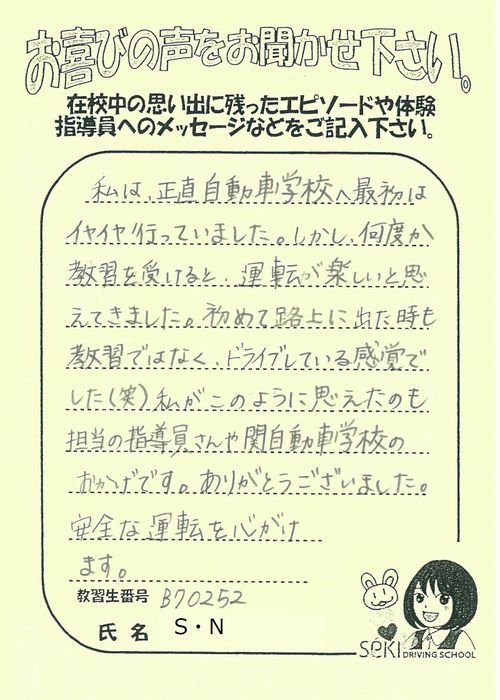 お喜びの声をお聞かせ下さい。
在校中の思い出に残ったエピソードや体験
指導員へのメッセージなどをご記入下さい。
私は、正直自動車学校へ最初は
イヤイヤ行っていました。しかし、何度か
教習を受けると、運転が楽しいと思
えてきました。初めて路上に出た時も
教習ではなく、ドライブしている感覚で
した(笑)私がこのように思えたのも
担当の指導員さんや関自動車学校の
おかげです。ありがとうございました。
安全な運転を心がけ
ます。
教習生番号 B70252
氏名 S・N
SEKI DRIVING SCHOOL